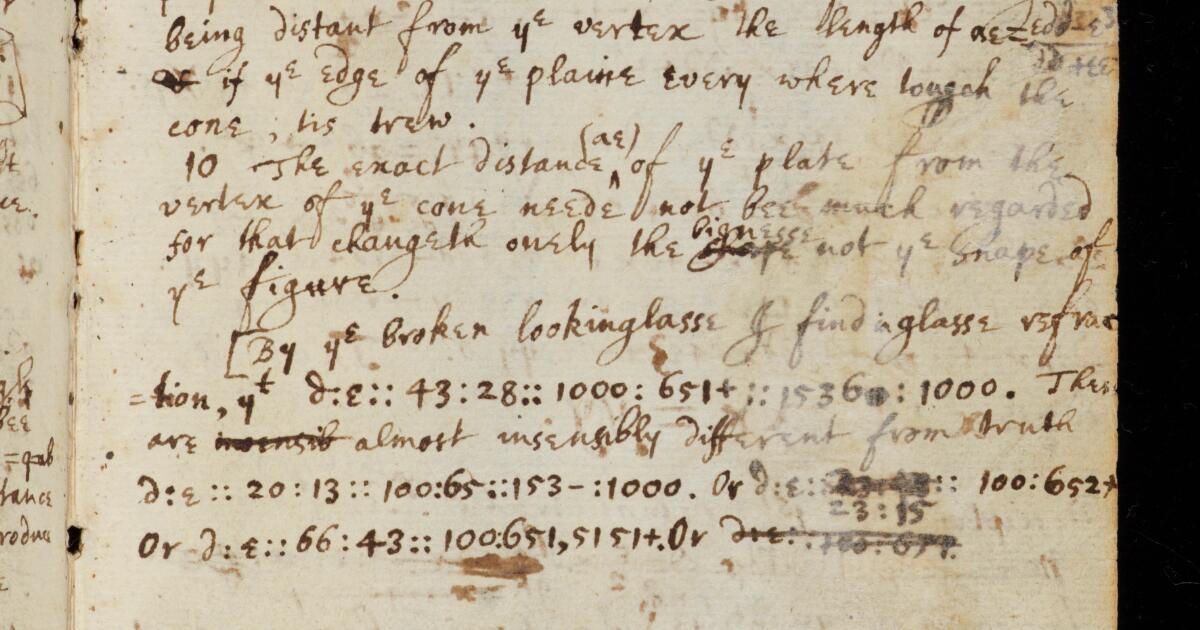 being distant from yᵉ vertex the length of ae=edd-e³/dd+ee
or if yᵉ edge of yᵉ plaine every where touch the
cone, tis trew.
10 The exact distance (ae) of yᵉ plate from the
vertex of yᵉ cone neede not bee much regarded
for that changeth onely the bignesse not yᵉ shape of
yᵉ figure.
[By yᵉ broken lookinglasse I find in glasse refrac
=tion, yᵗ d:e:: 43:28:: 1000:651+:: 1536 : 1000. These
are insensib almost insensibly different from truth
d:e:: 20:13:: 100:65::153-:1000. Or d:e:: 23:15 :: 100:652+
Or d:e::66:43:: 100:651,5151+. Or d:e: